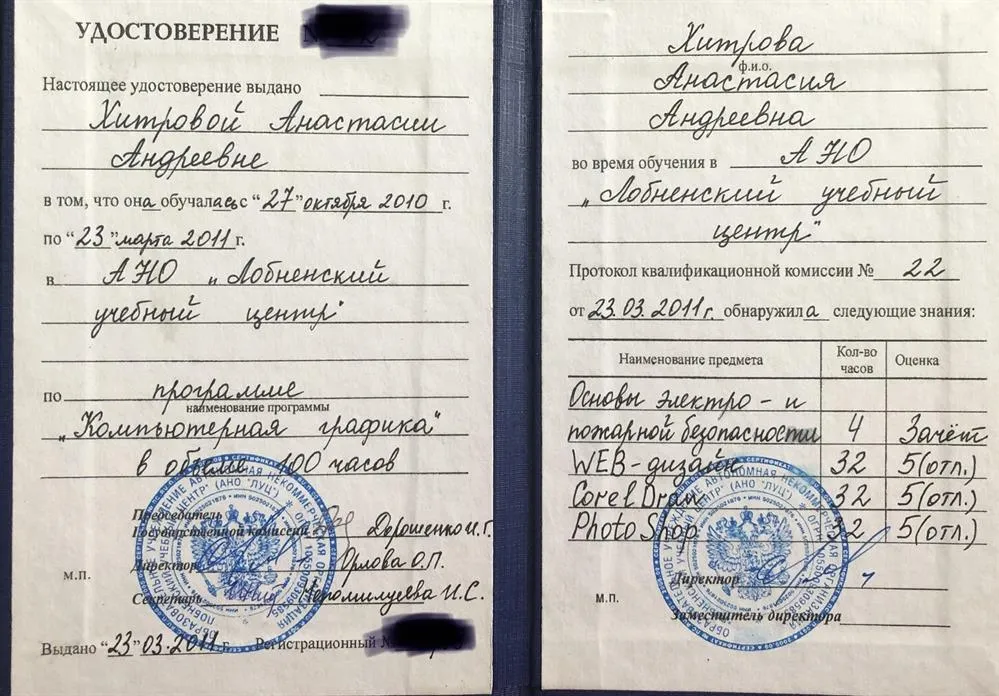 УДОСТОВЕРЕНИЕ
Настоящее удостоверение выдано
Хитровой Анастасии
Андреевне
в том, что она обучалась с "27" октября 2010 г.
по "23" марта 2011 г.
в АНО "Лобненский
учебный центр"
по программе
наименование программы
"Компьютерная графика"
в объеме 100 часов
Председатель
Государственной комиссии Дорошенко И.Г.
Директор Орлова О.П.
Секретарь И.С.
м.п.
Выдано "23" 03.2011 г. Регистрационный №
Хитрова
ф.и.о.
Анастасия
Андреевна
во время обучения в АНО
"Лобненский учебный
центр"
Протокол квалификационной комиссии № 22
от 23.03.2011г. обнаружила следующие знания:
Наименование предмета Кол-во часов Оценка
Основы электро- и
пожарной безопасности 4 Зачёт
WEB-дизайн 32 5(отл.)
Corel Draw 32 5(отл.)
PhotoShop 32 5(отл.)
Директор
м.п.
Заместитель директора